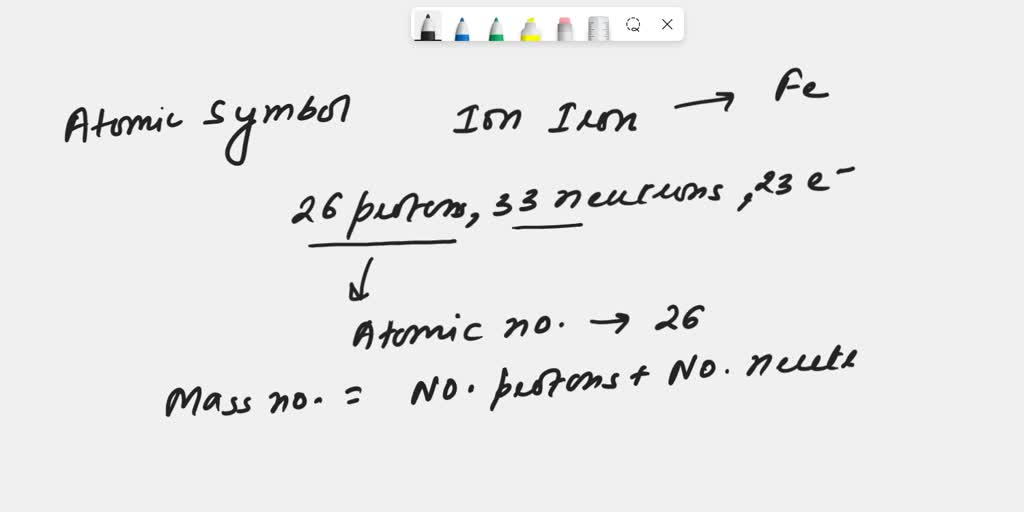 Atomic Symbol Ion Iron → Fe
26 protons, 33 neutrons, 23 e⁻
Atomic no. → 26
Mass no. = No. protons + No. neut